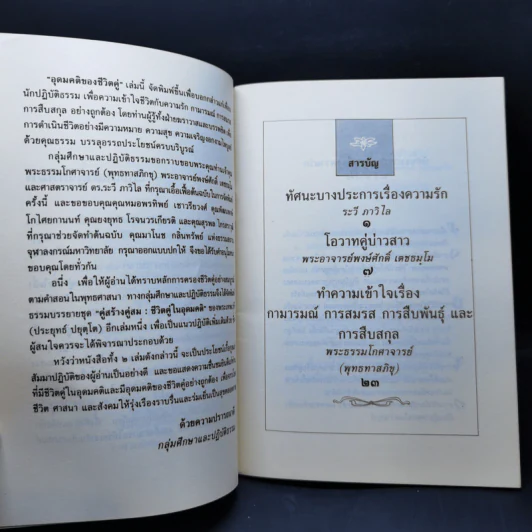 "อุดมคติของชีวิตคู่" เล่มนี้ จัดพิมพ์ขึ้นเพื่อ
นักปฏิบัติธรรม เพื่อความเข้าใจชีวิตกับความรัก กามารมณ์
การสืบสกุล อย่างถูกต้อง โดยท่านผู้รู้ทั้งฝ่ายฆราวาสและบรรพชิต
การดำเนินชีวิตอย่างมีความหมาย ความสุข ความเจริญ
ด้วยคุณธรรม บรรลุอรรถประโยชน์ครบบริบูรณ์
กลุ่มศึกษาและปฏิบัติธรรมขอกราบขอบพระคุณท่านเจ้าคุณ
พระธรรมโกศาจารย์ (พุทธทาสภิกขุ) พระอาจารย์พงษ์ศักดิ์ เตชธมฺโม
และศาสตราจารย์ ดร.ระวี ภาวิไล ที่กรุณาเอื้อเฟื้อต้นฉบับ
ครั้งนี้ และขอขอบคุณคุณหมอพรทิพย์ เชาวรียวงศ์
โกไศยกานนท์ คุณยงยุทธ โรจนวรเกียรติ และคุณสุรพล
ที่กรุณาช่วยจัดทำต้นฉบับ คุณมาโนช กลิ่นทรัพย์ แห่ง
จุฬาลงกรณ์มหาวิทยาลัย กรุณาออกแบบปกให้ จึงขอได้รับ
ขอบคุณโดยทั่วกัน
อนึ่ง เพื่อให้ผู้อ่านได้ทราบหลักการครองชีวิตคู่อย่าง
ตามคำสอนในพุทธศาสนา ทางกลุ่มศึกษาและปฏิบัติธรรมจึงได้จัดพิมพ์
ธรรมบรรยายชุด "คู่สร้างคู่สม : ชีวิตคู่ในอุดมคติ" ของ
(ประยุทธ์ ปยุตฺโต) อีกเล่มหนึ่ง เพื่อเป็นแนวปฏิบัติเพิ่มเติม
ผู้สนใจควรจะได้พิจารณาประกอบด้วย
หวังว่าหนังสือทั้ง ๒ เล่มดังกล่าวนี้ จะเป็นประโยชน์
สัมมาปฏิบัติของผู้อ่านเป็นอย่างดี และขอแสดงความชื่นชม
ที่มีชีวิตคู่ในอุดมคติและมีอุดมคติของชีวิตคู่อย่างถูกต้อง
ชีวิต ศาสนา และสังคมให้รุ่งเรืองราบรื่นและร่มเย็น
ด้วยความปรารถนาดี
กลุ่มศึกษาและปฏิบัติธรรม
สารบัญ
ทัศนะบางประการเรื่องความรัก
ระวี ภาวิไล
๑
โอวาทคู่บ่าวสาว
พระอาจารย์พงษ์ศักดิ์ เตชธมฺโม
๗
ทำความเข้าใจเรื่อง
กามารมณ์ การสมรส การสืบพันธุ์ และ
การสืบสกุล
พระธรรมโกศาจารย์
(พุทธทาสภิกขุ)
๒๓